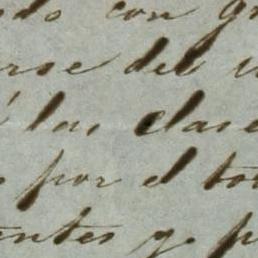 ndo con gr
rse del u
las clase
por el tot
entes y. p